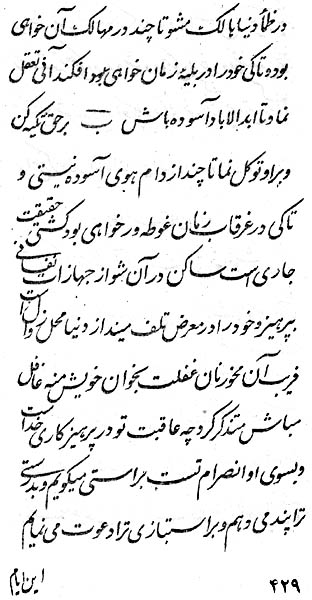 در ظلماً دنیا با لک مشو تا چند در مهالک آن خواهی
بود تا کی خود را در بلیهٔ زمان خواهی بهوا فکند آنی تعقل
نما و تا ابد الاباد آسوده باش ب بر حق تکیه کن
و بر او توکل نما تا چند از دام هوی آسوده نیستی و
تا کی در غرقاب زمان غوطه ور خواهی بود کشتی حقیقت
جاری است ساکن در آن شو از جهازات نفسانی
بپرهیز و خود را در معرض تلف مینداز دنیا محل زوال است
فریب آن مخور نان غفلت بخوان خویش منه غافل
مباش متذکر گرد چه عاقبت تو در پرهیزکاری خداست
و بسوی او انصرام تست براستی میگویم و بدرستی
ترا پند می دهم و براستبازی ترا دعوت می نمایم
۴۲۹
این ایام